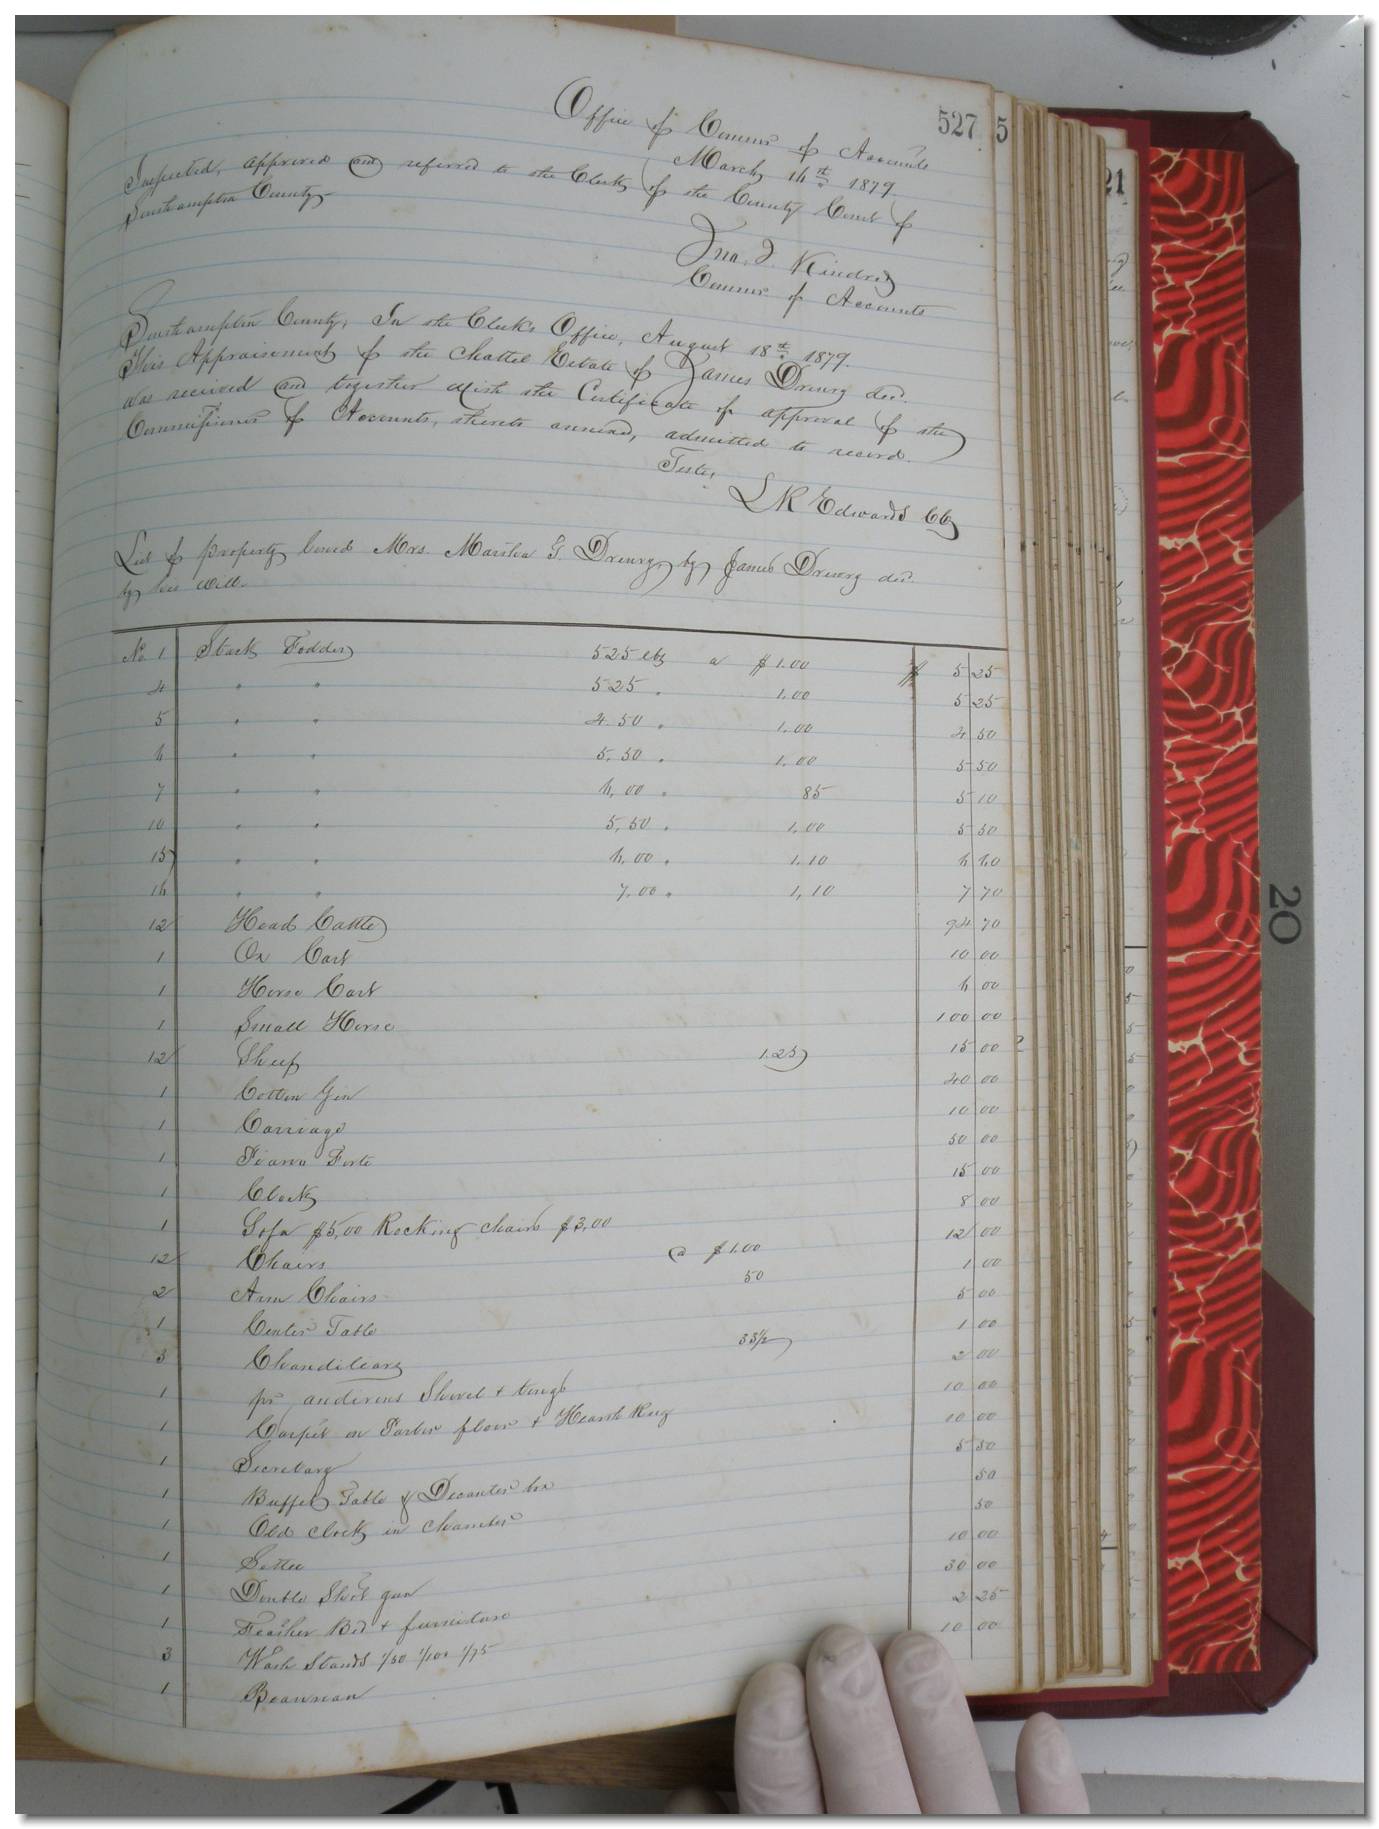 527
5
21
Office of Commr of Accounts
March 14th 1879
Inspected, approved and referred to the Clerk of the County Court of
Southampton County
Jno. J. Kindred
Commr of Accounts
Southampton County, In the Clerks Office, August 18th 1879.
This Appraisement of the Chattel Estate of James Drewry decd.
was received and together with the Certificate of approval of the
Commissioner of Accounts, thereto annexed, admitted to record.
Teste,
L R Edwards Clk
List of property loaned Mrs. Martha G. Drewry, by James Drewry decd.
by his will.
No. 1 Stack Fodder 525 lbs a $1.00 $ 5 25
4 " " 525 " 1.00 5 25
5 " " 4.50 " 1.00 4 50
6 " " 5.50 " 1.00 5 50
7 " " 6.00 " 85 5 10
10 " " 5.50 " 1.00 5 50
15 " " 6.00 " 1.10 6 60
16 " " 7.00 " 1.10 7 70
12 Head Cattle 94 70
1 Ox Cart 10 00
1 Horse Cart 6 00
1 Small Horse 100 00
12 Sheep 1.25 15 00
1 Cotton Gin 40 00
1 Carriage 10 00
1 Piano Forte 50 00
1 Clock 15 00
1 Sofa $5.00 Rocking chairs $3.00 8 00
12 Chairs @ $1.00 12 00
2 Arm Chairs 50 1 00
1 Center Table 5 00
3 Chandileary 33½ 1 00
1 pr andirons Shovel & tongs 2 00
1 Carpet on Parlor floor & Hearth Rug 10 00
1 Secretary 10 00
1 Buffet Table & Decanter box 5 50
1 Old clock in chamber 50
1 Settee 50
1 Double Shot gun 10 00
1 Feather Bed & furniture 30 00
3 Wash Stands 1/50 1/100 1/75 2 25
1 Beaureau 10 00
20